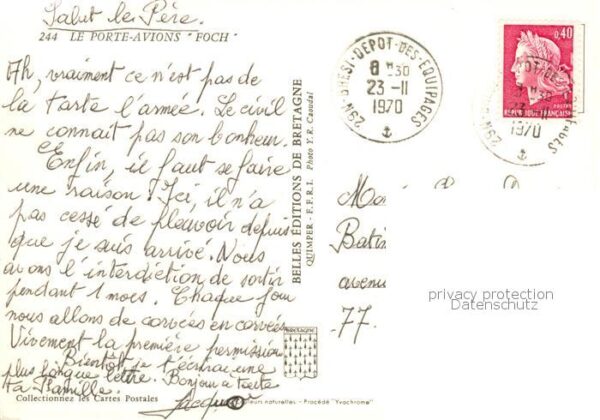 Salut le Père.
244 LE PORTE-AVIONS "FOCH"
Ah, vraiment ce n'est pas de
la tarte l'armée. Le civil
ne connait pas son bonheur.
Enfin, il faut se faire
une raison. Ici, il n'a
pas cessé de pleuvoir depuis
que je suis arrivé. Nous
avons l'interdiction de sortir
pendant 1 mois. Chaque jour
nous allons de corvées en corvées
Vivement la première permission
Bientôt je t'écrirai une
plus longue lettre. Bonjour à toute
ta famille.
Jacques
Collectionnez les Cartes Postales
BELLES ÉDITIONS DE BRETAGNE
QUIMPER - F.F.R.I. Photo Y.R. Caoudal
BRETAGNE
Couleurs naturelles - Procédé "Yvachrome"
29N-BREST-DEPOT-DES-EQUIPAGES
8 H 30
23-11
1970
0,40
POSTES
REPUBLIQUE FRANÇAISE
1970
avenu
77.
privacy protection
Datenschutz